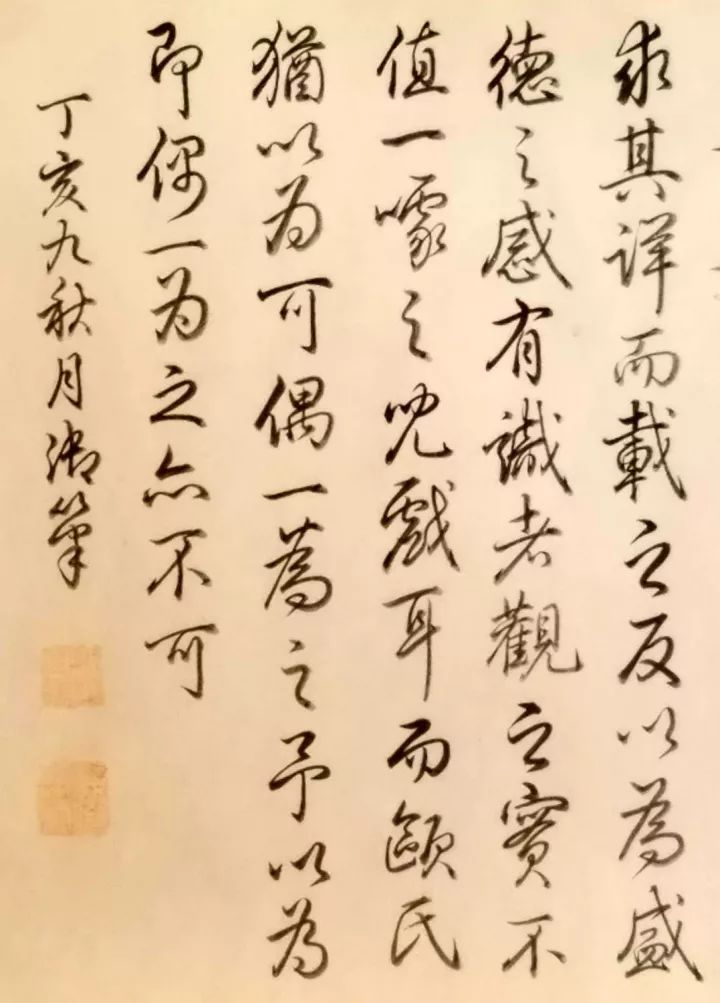 求其详而載之反以為盛
德之感有識者觀之實不
值一噱之兒戲耳而歐氏
猶以为可偶一為之予以为
即偶一为之亦不可
丁亥九秋月御筆